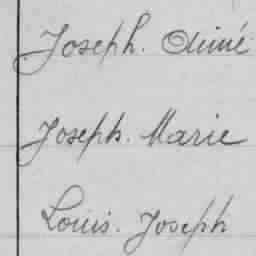 Joseph. Aimé
Joseph. Marie
Louis. Joseph